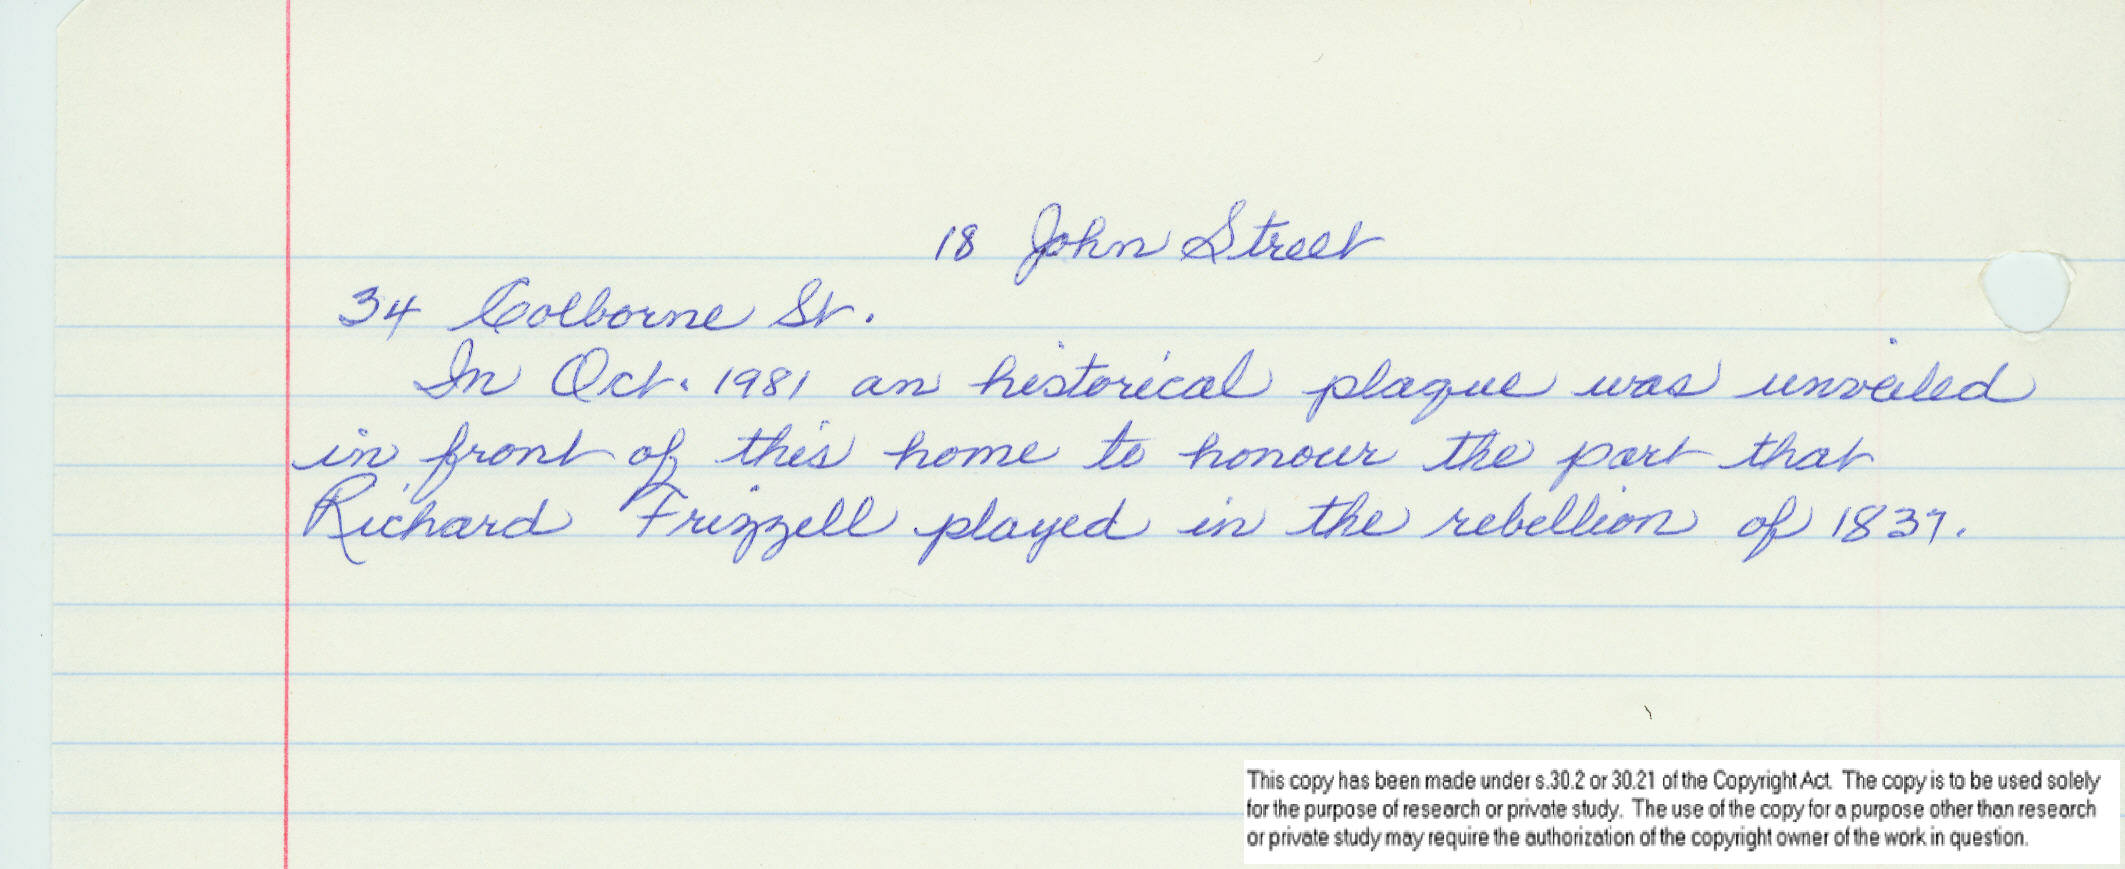 18 John Street
34 Colborne St.
In Oct. 1981 an historical plaque was unveiled
in front of this home to honour the part that
Richard Frizzell played in the rebellion of 1837.
This copy has been made under s.30.2 or 30.21 of the Copyright Act. The copy is to be used solely
for the purpose of research or private study. The use of the copy for a purpose other than research
or private study may require the authorization of the copyright owner of the work in question.